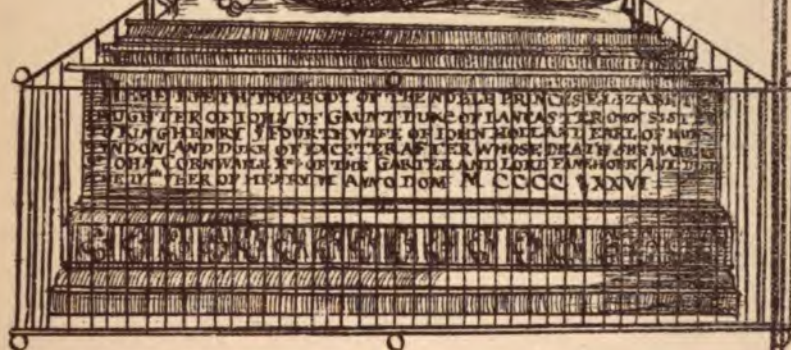 HERE LIETH THE BODY OF THE NOBLE PRINCES ELIZABETH
DAUGHTER OF IOHN OF GAUNT DUKE OF LANCASTER OWN SISTER
TO KING HENRY Y FOURTH WIFE OF IOHN HOLLAND EARL OF
AND DUKE OF EXCETTER AFTER WHOSE DEATH SHE
IOHN CORNWALL OF THE GARTER AND LORD
OF HENRY VI ANNO DOM M CCCC XXVI